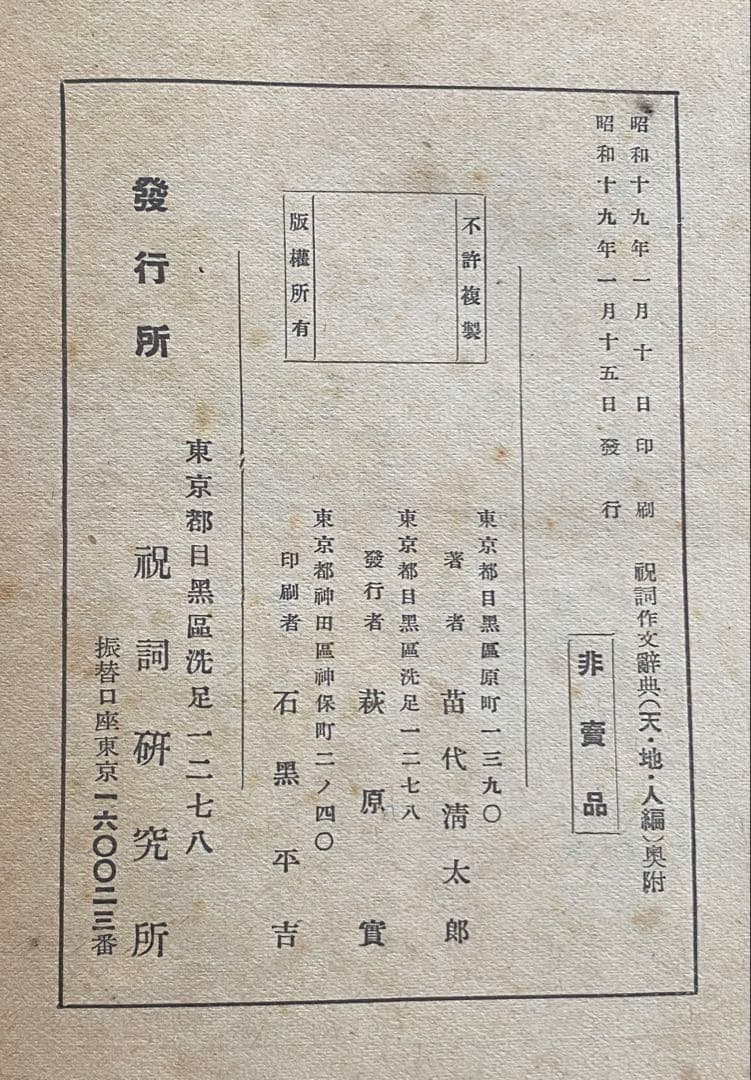 昭和十九年一月十日印刷
昭和十九年一月十五日發行
祝詞作文辭典(天・地・人編)奧附
非賣品
不許複製
版權所有
東京都目黑區原町一三九〇
著者 苗代淸太郎
東京都目黑區洗足一二七八
發行者 萩原實
東京都神田區神保町二ノ四〇
印刷者 石黑平吉
東京都目黑區洗足一二七八
發行所 祝詞硏究所
振替口座東京一六〇〇二三番